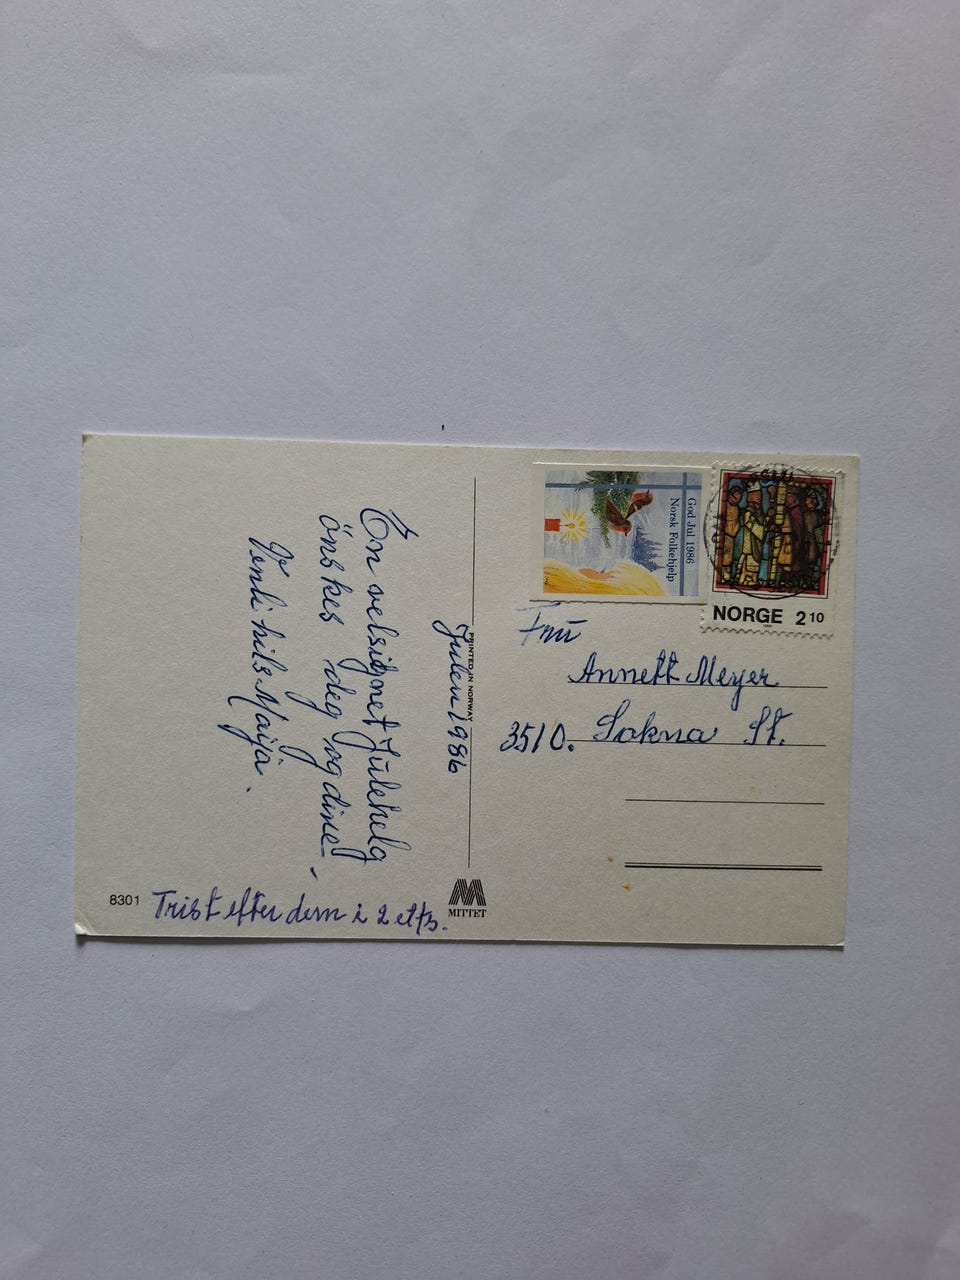 Julen 1986
En velsignet Julehelg
önskes deg og dine!
Venli hils Maija.
Trist efter dem i 2 etß.
8301
PRINTED IN NORWAY
MITTET
God Jul 1986
Norsk Folkehjelp
NORGE 2 10
Frü
Annett Meyer
3510. Sokna St.